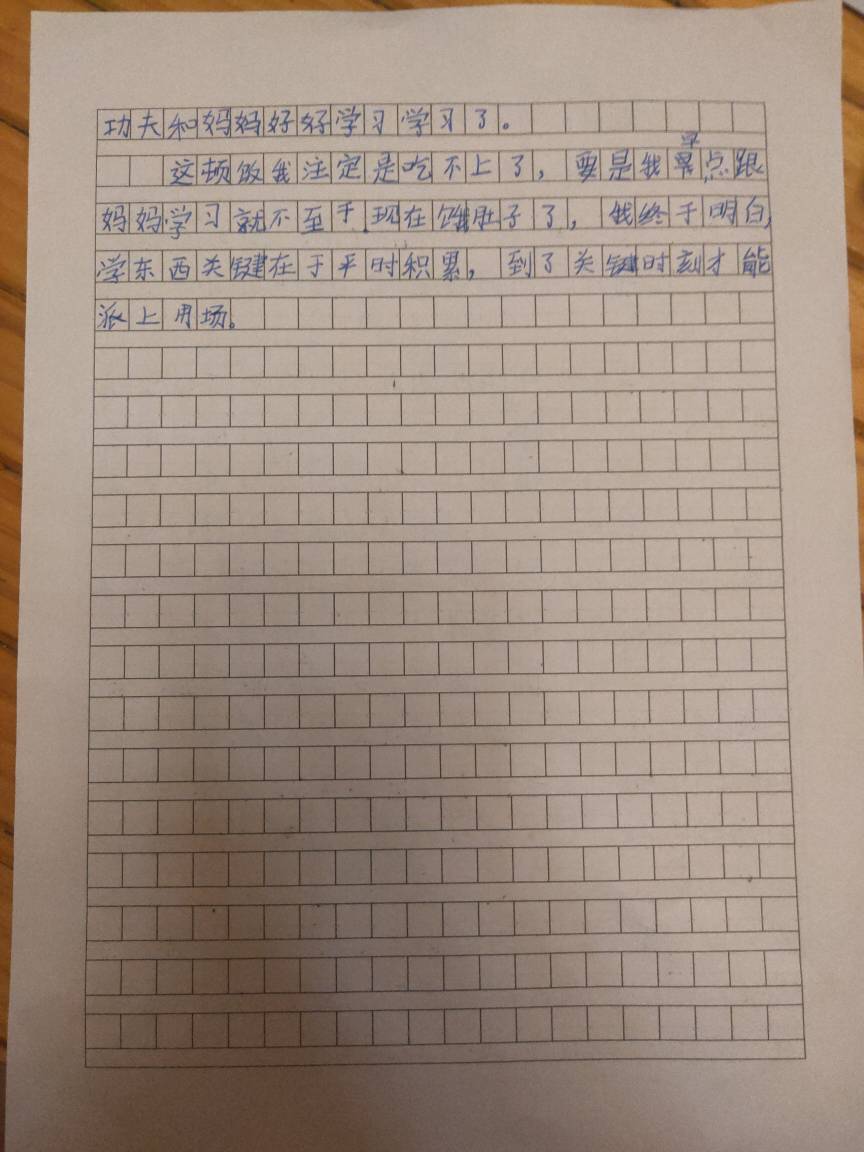 功夫和妈妈好好学习学习了。
这顿饭我注定是吃不上了，要是我早点跟
妈妈学习就不至于现在饿肚子了，我终于明白，
学东西关键在于平时积累，到了关键时刻才能
派上用场。